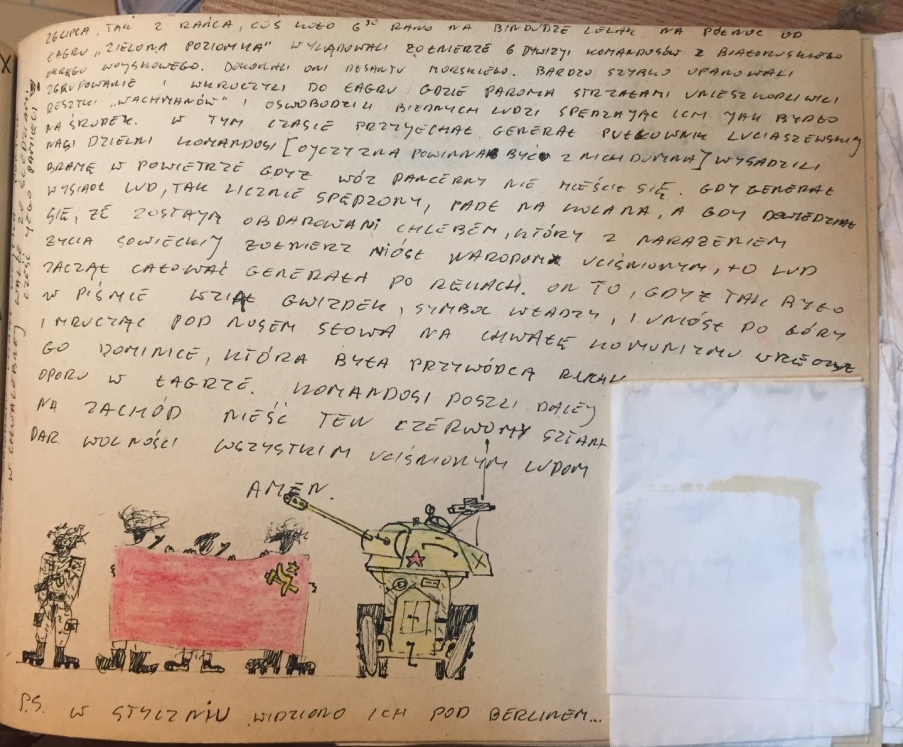 26 LIPCA, TAK Z RAŃCA, COŚ KOŁO 6³⁰ RANO NA BINDUDZE LELAK NA PÓŁNOC OD
ŁAGRU „ZIELONA POZIOMKA" WYLĄDOWALI ŻOŁNIERZE 6 DYWIZYI KOMANDOSÓW Z BIAŁORUSKIEGO
OKRĘGU WOYSKOWEGO. DOKONALI ONI DESANTU MORSKIEGO. BARDZO SZYBKO OPANOWALI
ZGRUPOWANIE I WKROCZYLI DO ŁAGRU GDZIE PAROMA STRZAŁAMI UNIESZKODLIWILI
RESZTKI „WACHMANÓW" I OSWOBODZILI BIEDNYCH LUDZI SPĘDZAJĄC ICH JAK BYDŁO
NA ŚRODEK. W TYM CZASIE PRZYJECHAŁ GENERAŁ PUŁKOWNIK LUCIASZEWSKIJ
NASI DZIELNI KOMANDOSI [OYCZYZNA POWINNA BYĆ Z NICH DUMNA] WYSADZILI
BRAMĘ W POWIETRZE GDYŻ WÓZ PANCERNY NIE MIEŚCIŁ SIĘ. GDY GENERAŁ
WYSIADŁ LUD, TAK LICZNIE SPĘDZONY, PADŁ NA KOLANA, A GDY DOWIEDZIAŁ
SIĘ, ŻE ZOSTAŁ OBDAROWANI CHLEBEM, KTÓRY Z NARAŻENIEM
ŻYCIA SOWIECKIJ ŻOŁNIERZ NIÓSŁ NARODOM UCIŚNIONYM, TO LUD
ZACZĄŁ CAŁOWAĆ GENERAŁA PO RĘKACH. ON TO, GDYŻ TAK BYŁO
W PIŚMIE WZIĄŁ GWIZDEK, SYMBOL WŁADZY, I UNIÓSŁ DO GÓRY
I MRUCZĄC POD NOSEM SŁOWA NA CHWAŁĘ KOMUNIZMU WRĘCZYŁ
GO DOMINICE, KTÓRA BYŁA PRZYWÓDCĄ RUCHU
OPORU W ŁAGRZE. KOMANDOSI POSZLI DALEJ
NA ZACHÓD NIEŚĆ TEN CZERWONY SZTAN
DAR WOLNOŚCI WSZYSTKIM UCIŚNIONYM LUDOM
AMEN.
P.S. W STYCZNIU WIDZIANO ICH POD BERLINEM...